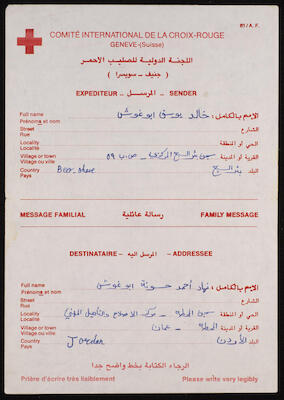 81/A.F.
COMITÉ INTERNATIONAL DE LA CROIX-ROUGE
GENÈVE-(Suisse)
اللجنة الدولية للصليب الاحمر
( جنيف - سويسرا )
EXPEDITEUR - المرسل - SENDER
Full name
Prénoms et nom
الاسم بالكامل : خالد يوسف ابو غوش
Street
Rue
الشارع
Locality
Localité
الحي أو المنطقة
Village or town
Ville ou ville
القرية أو المدينة سجن بئر السبع المركزي - ص.ب ٥٩
Country
Pays
Beer sheve
البلد بئر السبع
MESSAGE FAMILIAL رسالة عائلية FAMILY MESSAGE
DESTINATAIRE - المرسل اليه - ADDRESSEE
Full name
Prénoms et nom
الاسم بالكامل : نهاد أحمد ابو غوش
Street
Rue
الشارع
Locality
Localité
الحي أو المنطقة سجن - مركز الاصلاح والتأهيل
Village or town
Village ou ville
القرية أو المدينة - عمان
Country
Pays
Jordan
البلد الأردن
الرجاء الكتابة بخط واضح جدا
Prière d'écrire très lisiblement Please write very legibly